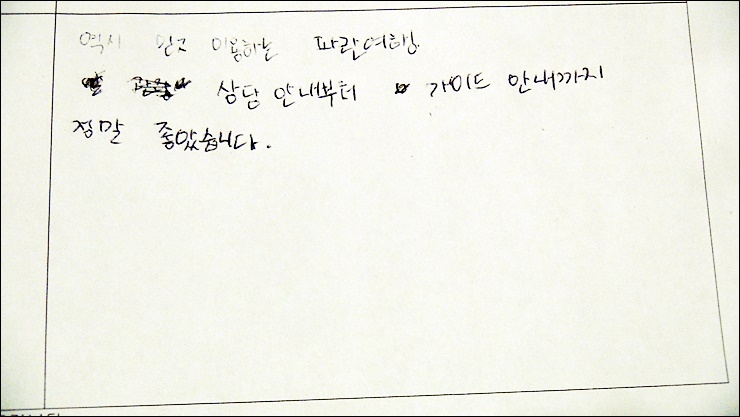 역시 믿고 이용하는 파란여행.
상담 안내부터 가이드 안내까지
정말 좋았습니다.